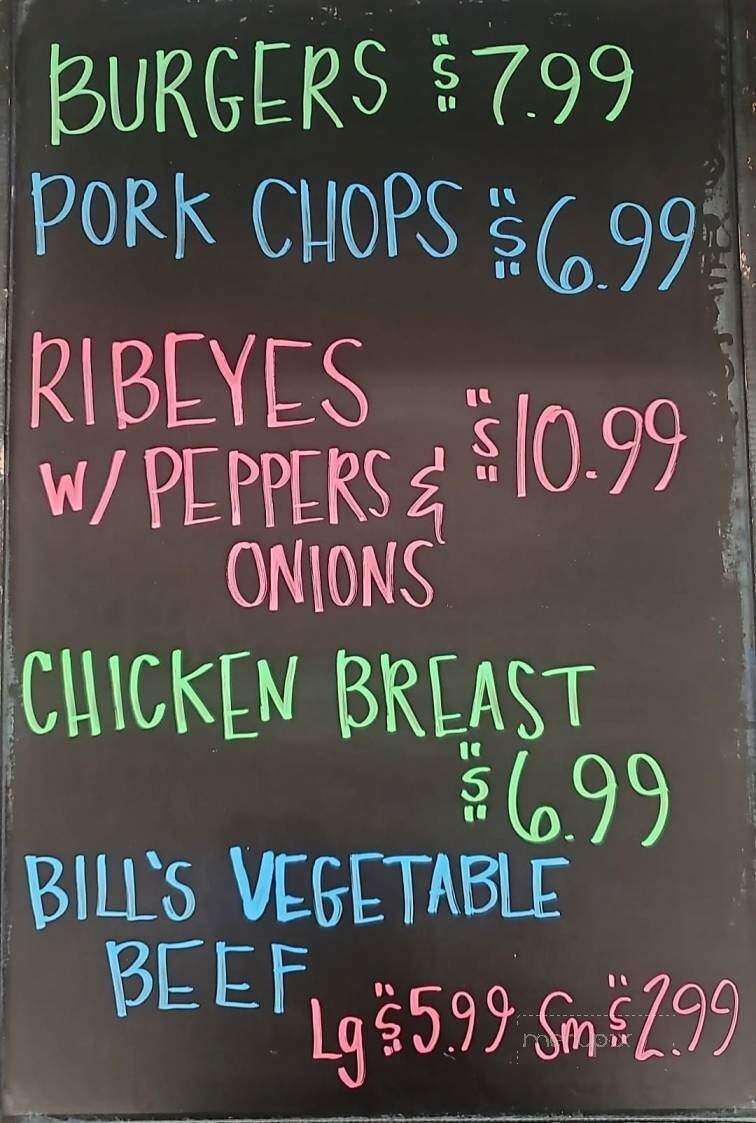 BURGERS $7.99
PORK CHOPS $6.99
RIBEYES
W/ PEPPERS & $10.99
ONIONS
CHICKEN BREAST
$6.99
BILL'S VEGETABLE
BEEF
Lg $5.99 Sm $2.99
menupix